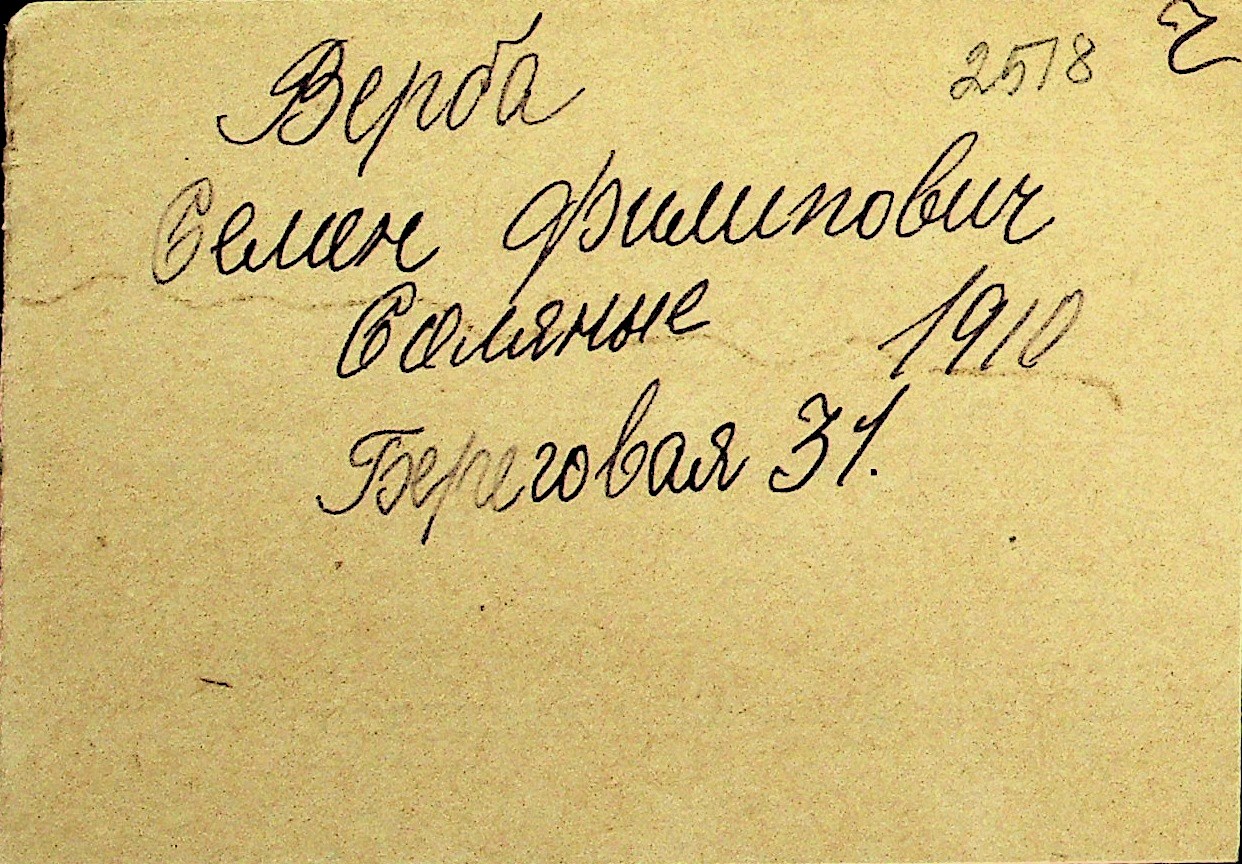 Верба 2518
Семен Филипович
Соляные 1910
Береговая 31.